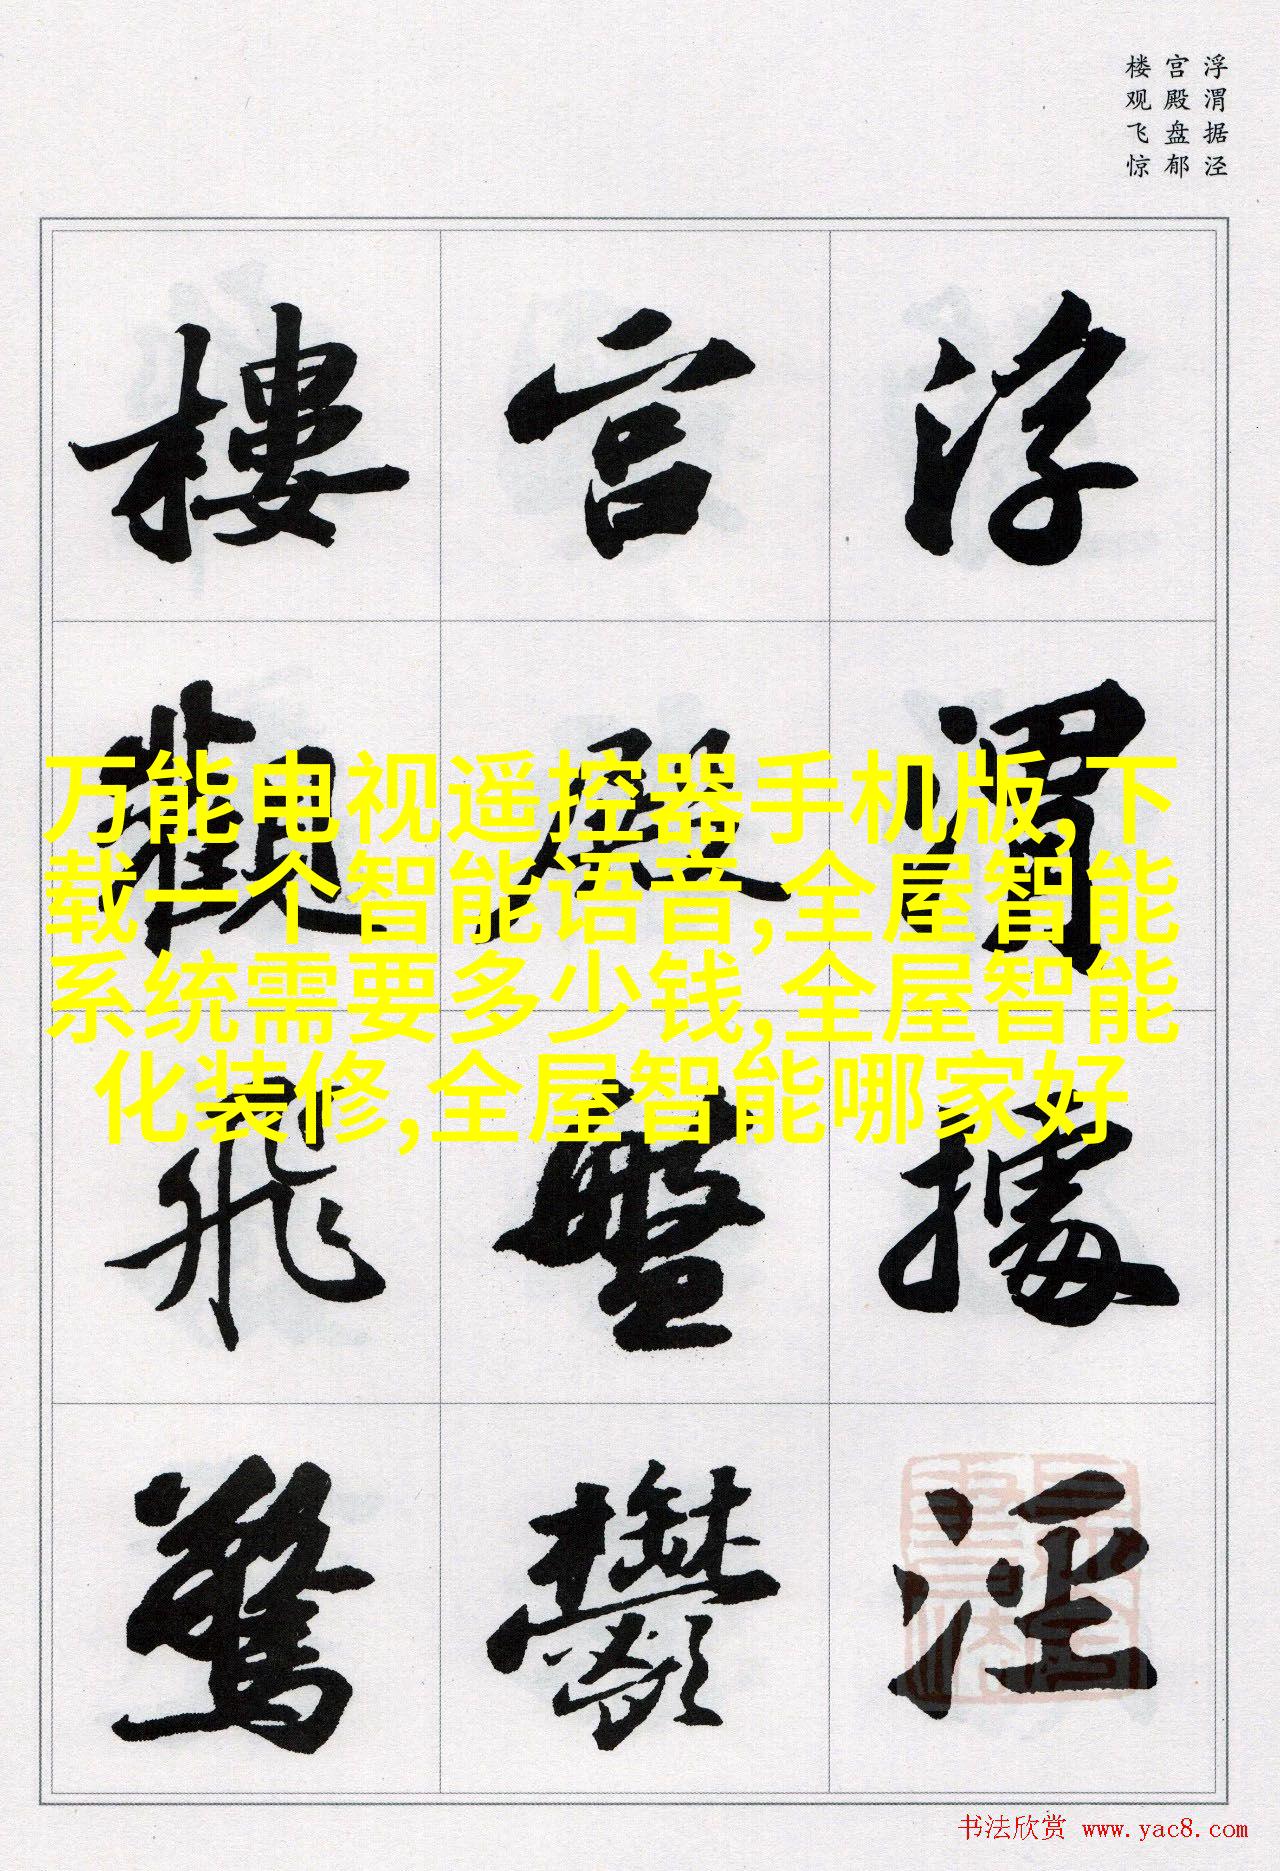 浮渭据泾
宫殿盘郁
楼观飞惊
浮渭據泾
宫殿盤鬱
樓觀飛驚
万能电视遥控器手机版,下
载一个智能语音,全屋智能
系统需要多少钱,全屋智能
化装修,全屋智能哪家好
书法欣赏 www.yac8.com